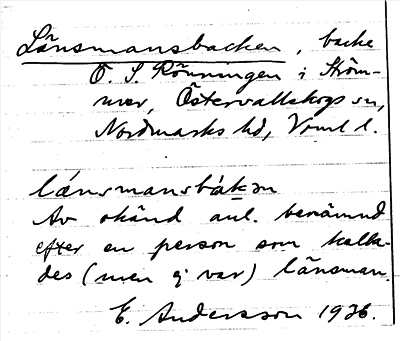 Länsmansbacken, backe
Ö. S. Rönningen i Ström-
mer, Östervallskogs sn,
Nordmarks hd, Vrml l.
länsmansbákən
Av okänd anl. benämnd
efter en person som kalla-
des (men ej var) länsman.
E. Andersson 1936.